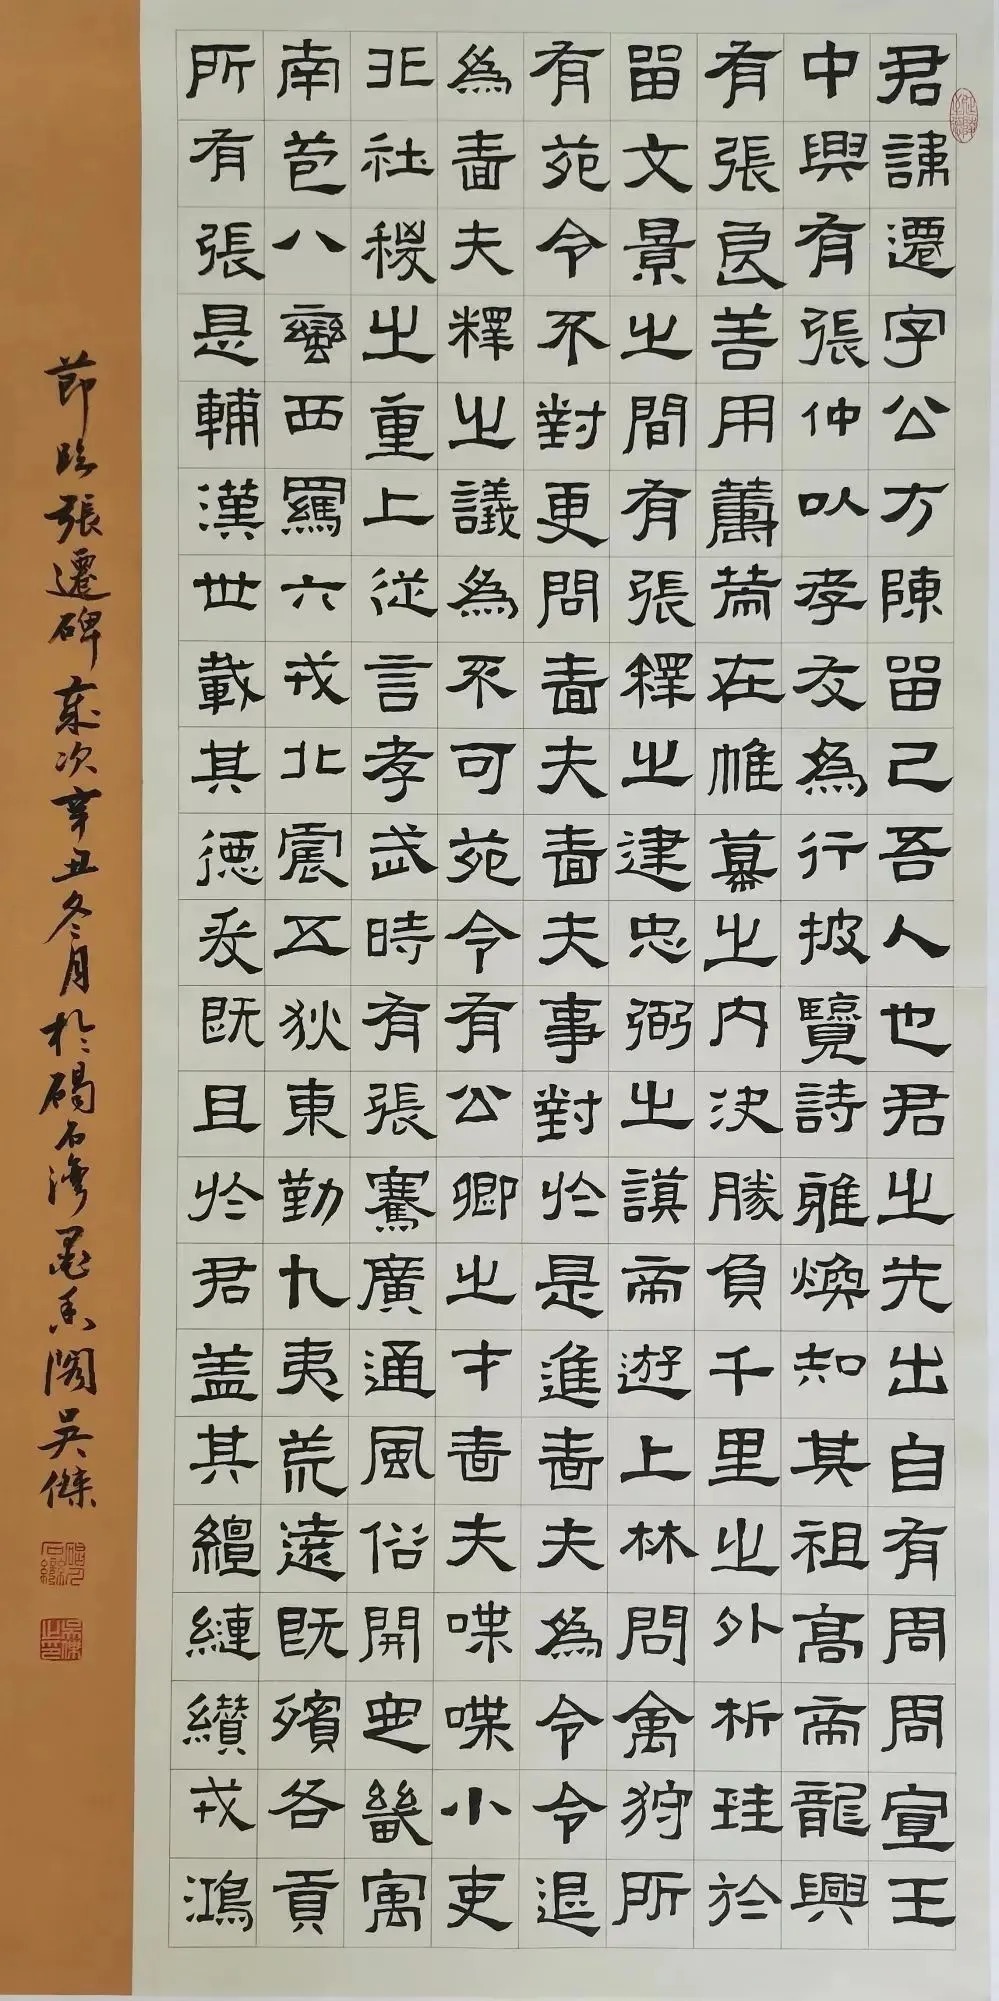 君諱遷字公方陳留己吾人也君之先出自有周周宣王
中興有張仲以孝友為行披覽詩雅煥知其祖高帝龍興
有張良善用籌策在帷幕之內決勝負千里之外析珪於
留文景之間有張釋之建忠弼之謨帝遊上林問禽狩所
有苑令不對更問嗇夫嗇夫事對於是進嗇夫為令令退
為嗇夫釋之議為不可苑令有公卿之才嗇夫喋喋小吏
非社稷之重上從言孝武時有張騫廣通風俗開定畿寓
南苞八蠻西羈六戎北震五狄東勤九夷荒遠既殯各貢
所有張是輔漢世載其德爰既且於君蓋其纏縺纘戎鴻
節臨張遷碑歲次辛丑冬月於碣石灣墨香閣吳傑